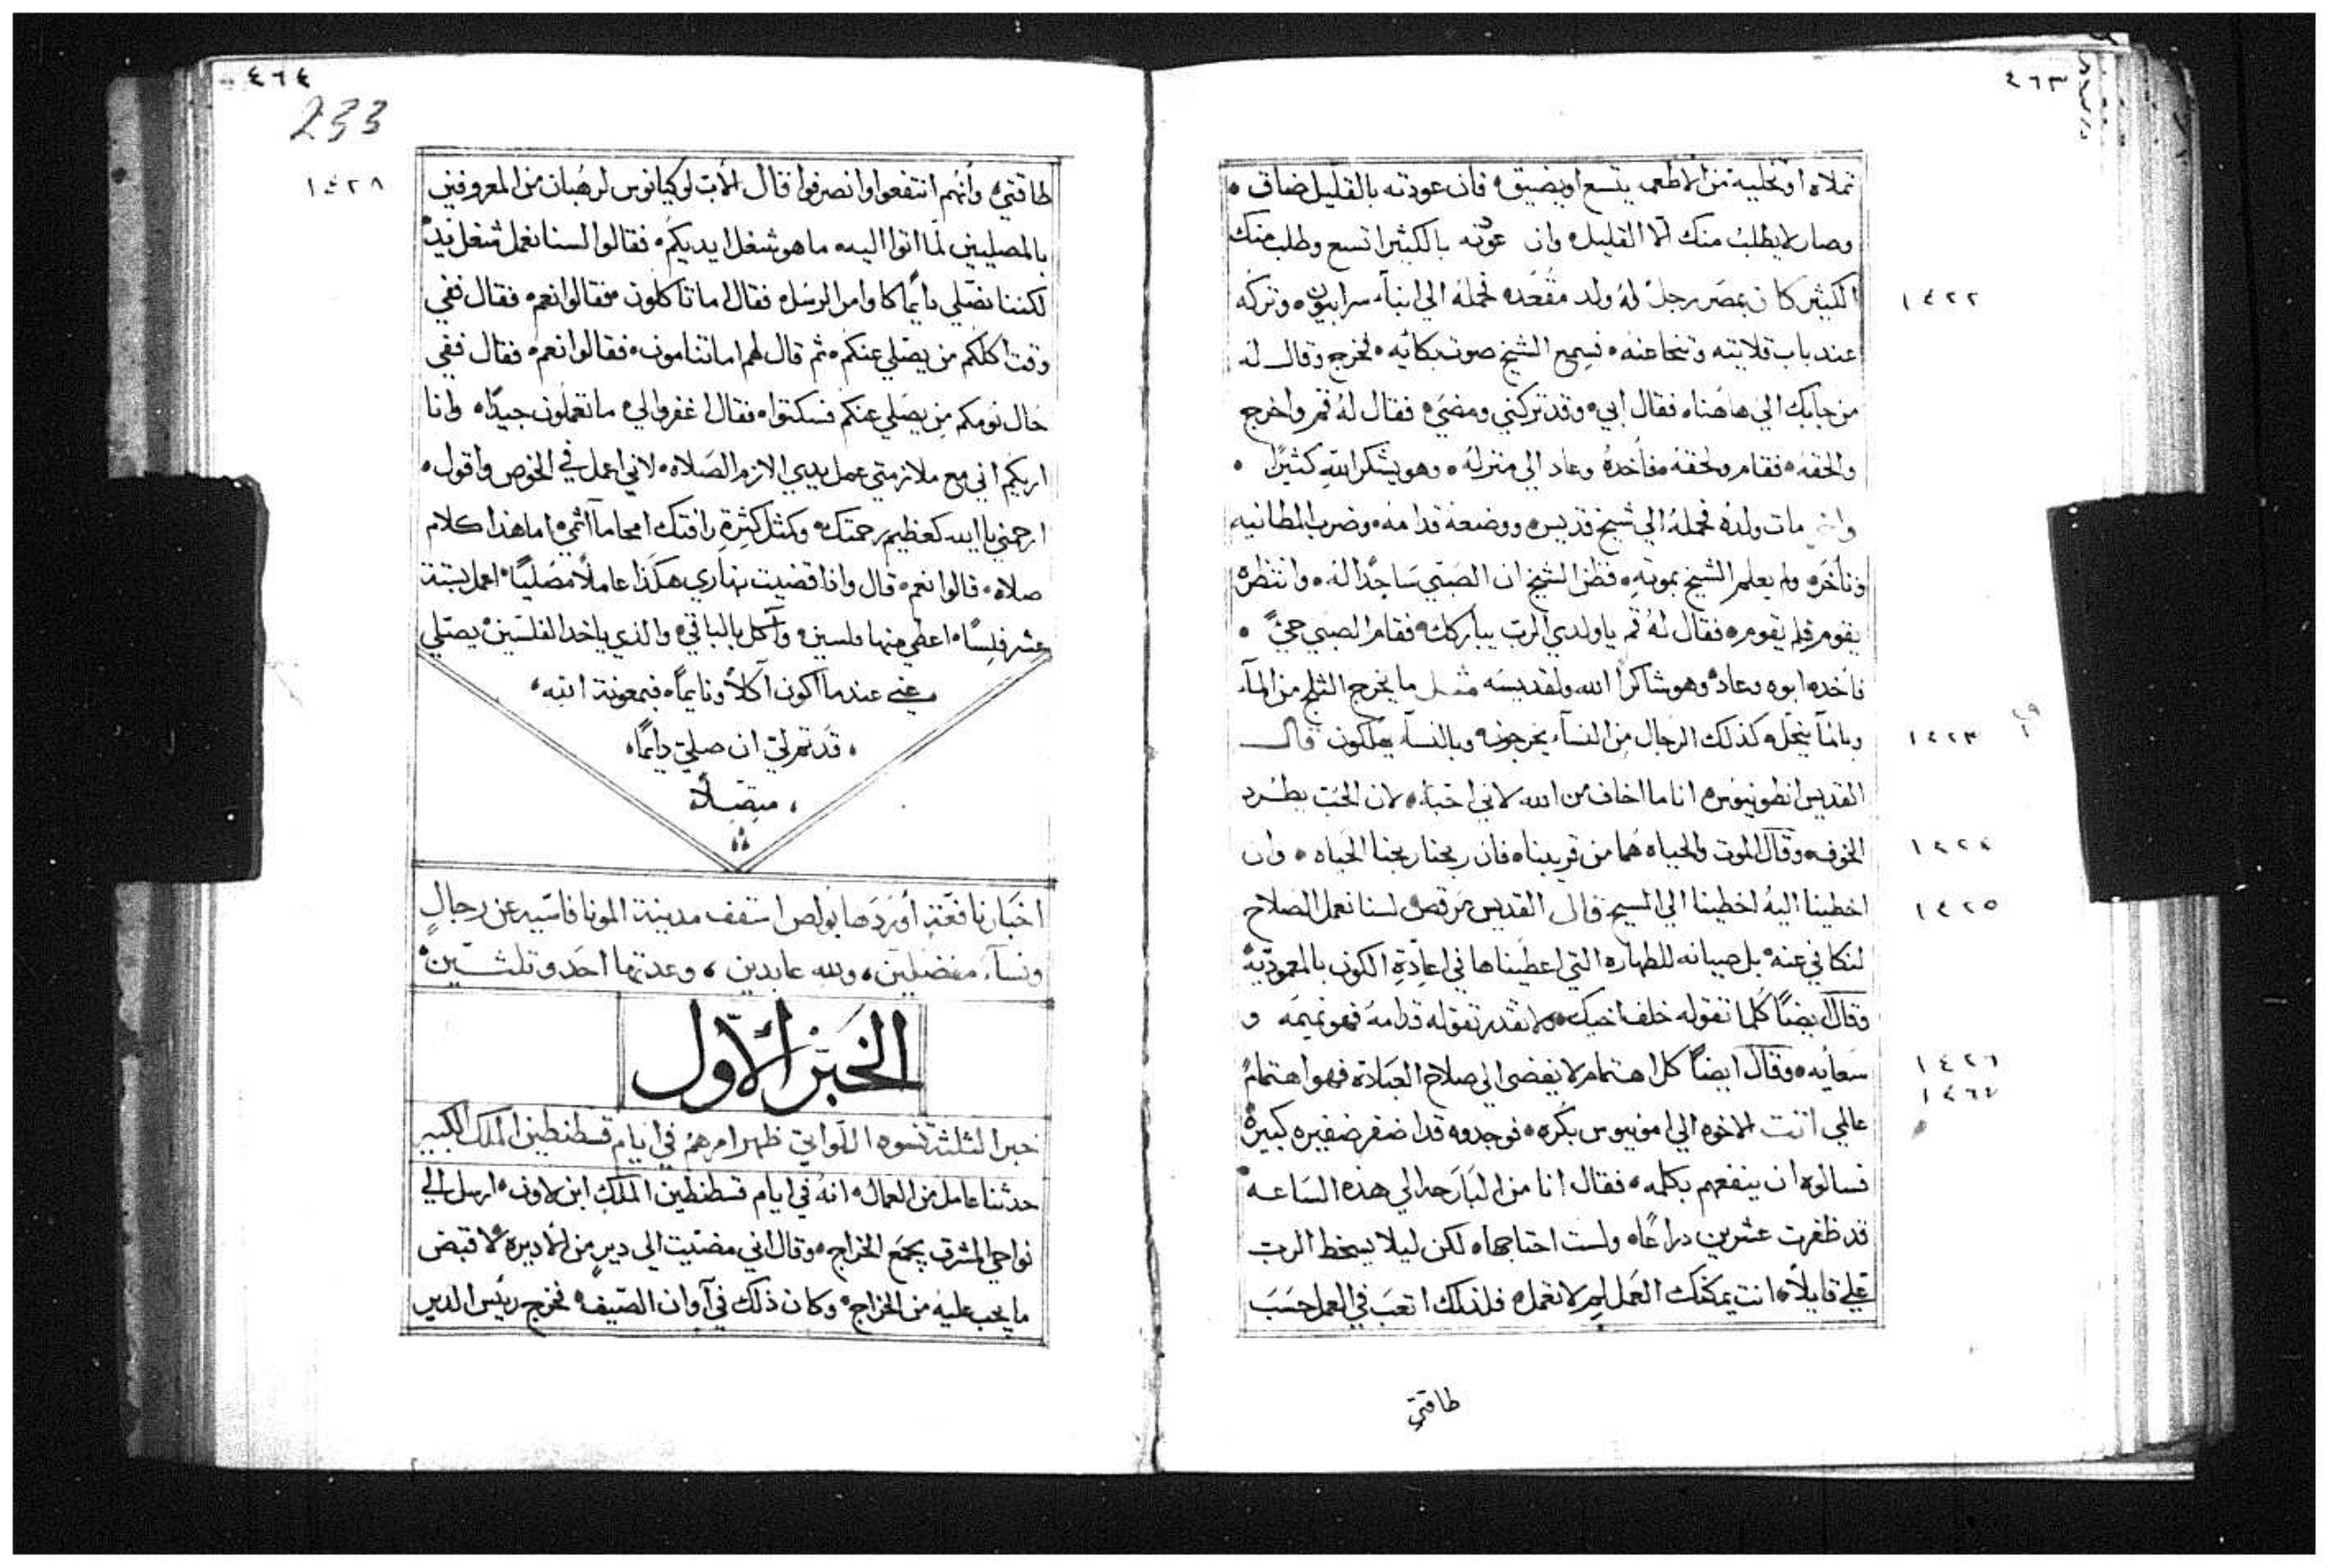 ٤٦٣
تملاه اوتخليه من الاطعمه يتسع اويضيق، فان عودته بالقليل ضاق،
وصار لا يطلب منك الا القليل، وان عودته بالكثير اتسع وطلب منك
١٤٢٢
الكثير كان بمصر رجل له ولد مقعد، فحمله الي انبا سرابيون، وتركه
عند باب قلايته وتنحا عنه، فسمع الشيخ صوت بكائه، فخرج وقال له
من جابك الي هاهنا، فقال ابي، وقد تركني ومضي، فقال له قم واخرج
والحقه، فقام ولحقه، فاخده وعاد الي منزله، وهو يشكر الله كثيرًا،
مات ولده، فحمله الي شيخ قديس، ووضعه قدامه، وضرب المطانيه
وتأخر، ولم يعلم الشيخ بموته، فظن الشيخ ان الصبي ساجدًا له، وانتظره
يقوم فلم يقوم، فقال له قم ياولدي الرب يباركك، فقام الصبي حيً،
فاخده ابوه وعاد، وهو شاكرا الله ولقديسه مثل ما يخرج الثلج من المآء
١٤٢٣
وبالمآ ينحل، كذلك الرجال من النسآء يخرجون، وبالنسآء يهلكون قال
القديس انطونيوس، انا ما اخاف من الله لاني احبه، لان الحب يطرد
١٤٢٤
الخوف، وقال الموت والحياه هما من قريبنا، فان ربحنا ربحنا الحياه، وان
١٤٢٥
اخطينا اليه اخطينا الي المسيح قال القديس مرقص لسنا نعمل الصلاح
لنكافي عنه، بل صيانه للطهاره التي اعطيناها في اعادة الكون بالمعموديه
وقال ايضًا كلما تقوله خلف اخيك، ولا تقدر تقوله قدامه فهو نميمه و
١٤٢٦
سعايه، وقال ايضًا كل اهتمام لا يفضي الي صلاح العباده فهو اهتمام
١٤٦٧
عالمي اتت الاخوه الي امونيوس بكره، فوجدوه قد اضفر ضفيره كبيره
فسالوه ان ينفعهم بكلمه، فقال انا من البارحه الي هذه الساعه
قد ظفرت عشرين دراعًا، ولست احتاجها، لكن ليلا يسخط الرب
علي قايلًا، انت يمكنك العمل لم لا تعمل، فلذلك اتعب في العمل حسب
طاقتي
٤٦٤
233
١٤٢٨
طاقتي، وانهم انتفعوا وانصرفوا قال الاب لوكيانوس لرهبان من المعروفين
بالمصليين لما اتوا اليه، ما هو شغل ايديكم، فقالوا لسنا نعمل شغل يد
لكننا نصلي دايمًا كاوامر الرسل، فقال اما تاكلون، فقالوا نعم، فقال ففي
وقت اكلكم من يصلي عنكم، ثم قال لهم اما تنامون، فقالوا نعم، فقال ففي
حال نومكم من يصلي عنكم فسكتوا، فقال اغفروا لي، ما تعملون جيدًا، وانا
اريكم اني مع ملازمتي عمل يدي الازم الصلاه، لاني اعمل في الخوص واقول،
ارحمني يا الله كعظيم رحمتك، وكمثل كثرة رافتك امحا مآثمي، اما هذا كلام
صلاه، قالوا نعم، قال واذا قضيت نهاري هكذا عاملًا مصليًا، اعمل بستة
عشر فلسًا، اعطي منها فلسين، وآكل بالباقي، والذي ياخد الفلسين يصلي
عني عندما اكون آكلًا ونايمًا، فبمعونة الله،
قد تم لي ان صلي دايمًا،
متصلة
اخبار نافعة اوردها بولص اسقف مدينة المونافاسيه عن رجالٍ
ونسآء مفضلين، ولله عابدين، وعدتها احد وتلثين
الخبر الاول
خبر الثلثة نسوه اللواتي ظهر امرهم في ايام قسطنطين الملك الكبير
حدثنا عامل من العمال، انه في ايام قسطنطين الملك ابن لاون، ارسل الي
نواحي المشرق يجمع الخراج، وقال اني مضيت الي ديرٍ من الاديره لاقبض
ما يجب عليه من الخراج، وكان ذلك في آوان الصيف، فخرج رئيس الدير